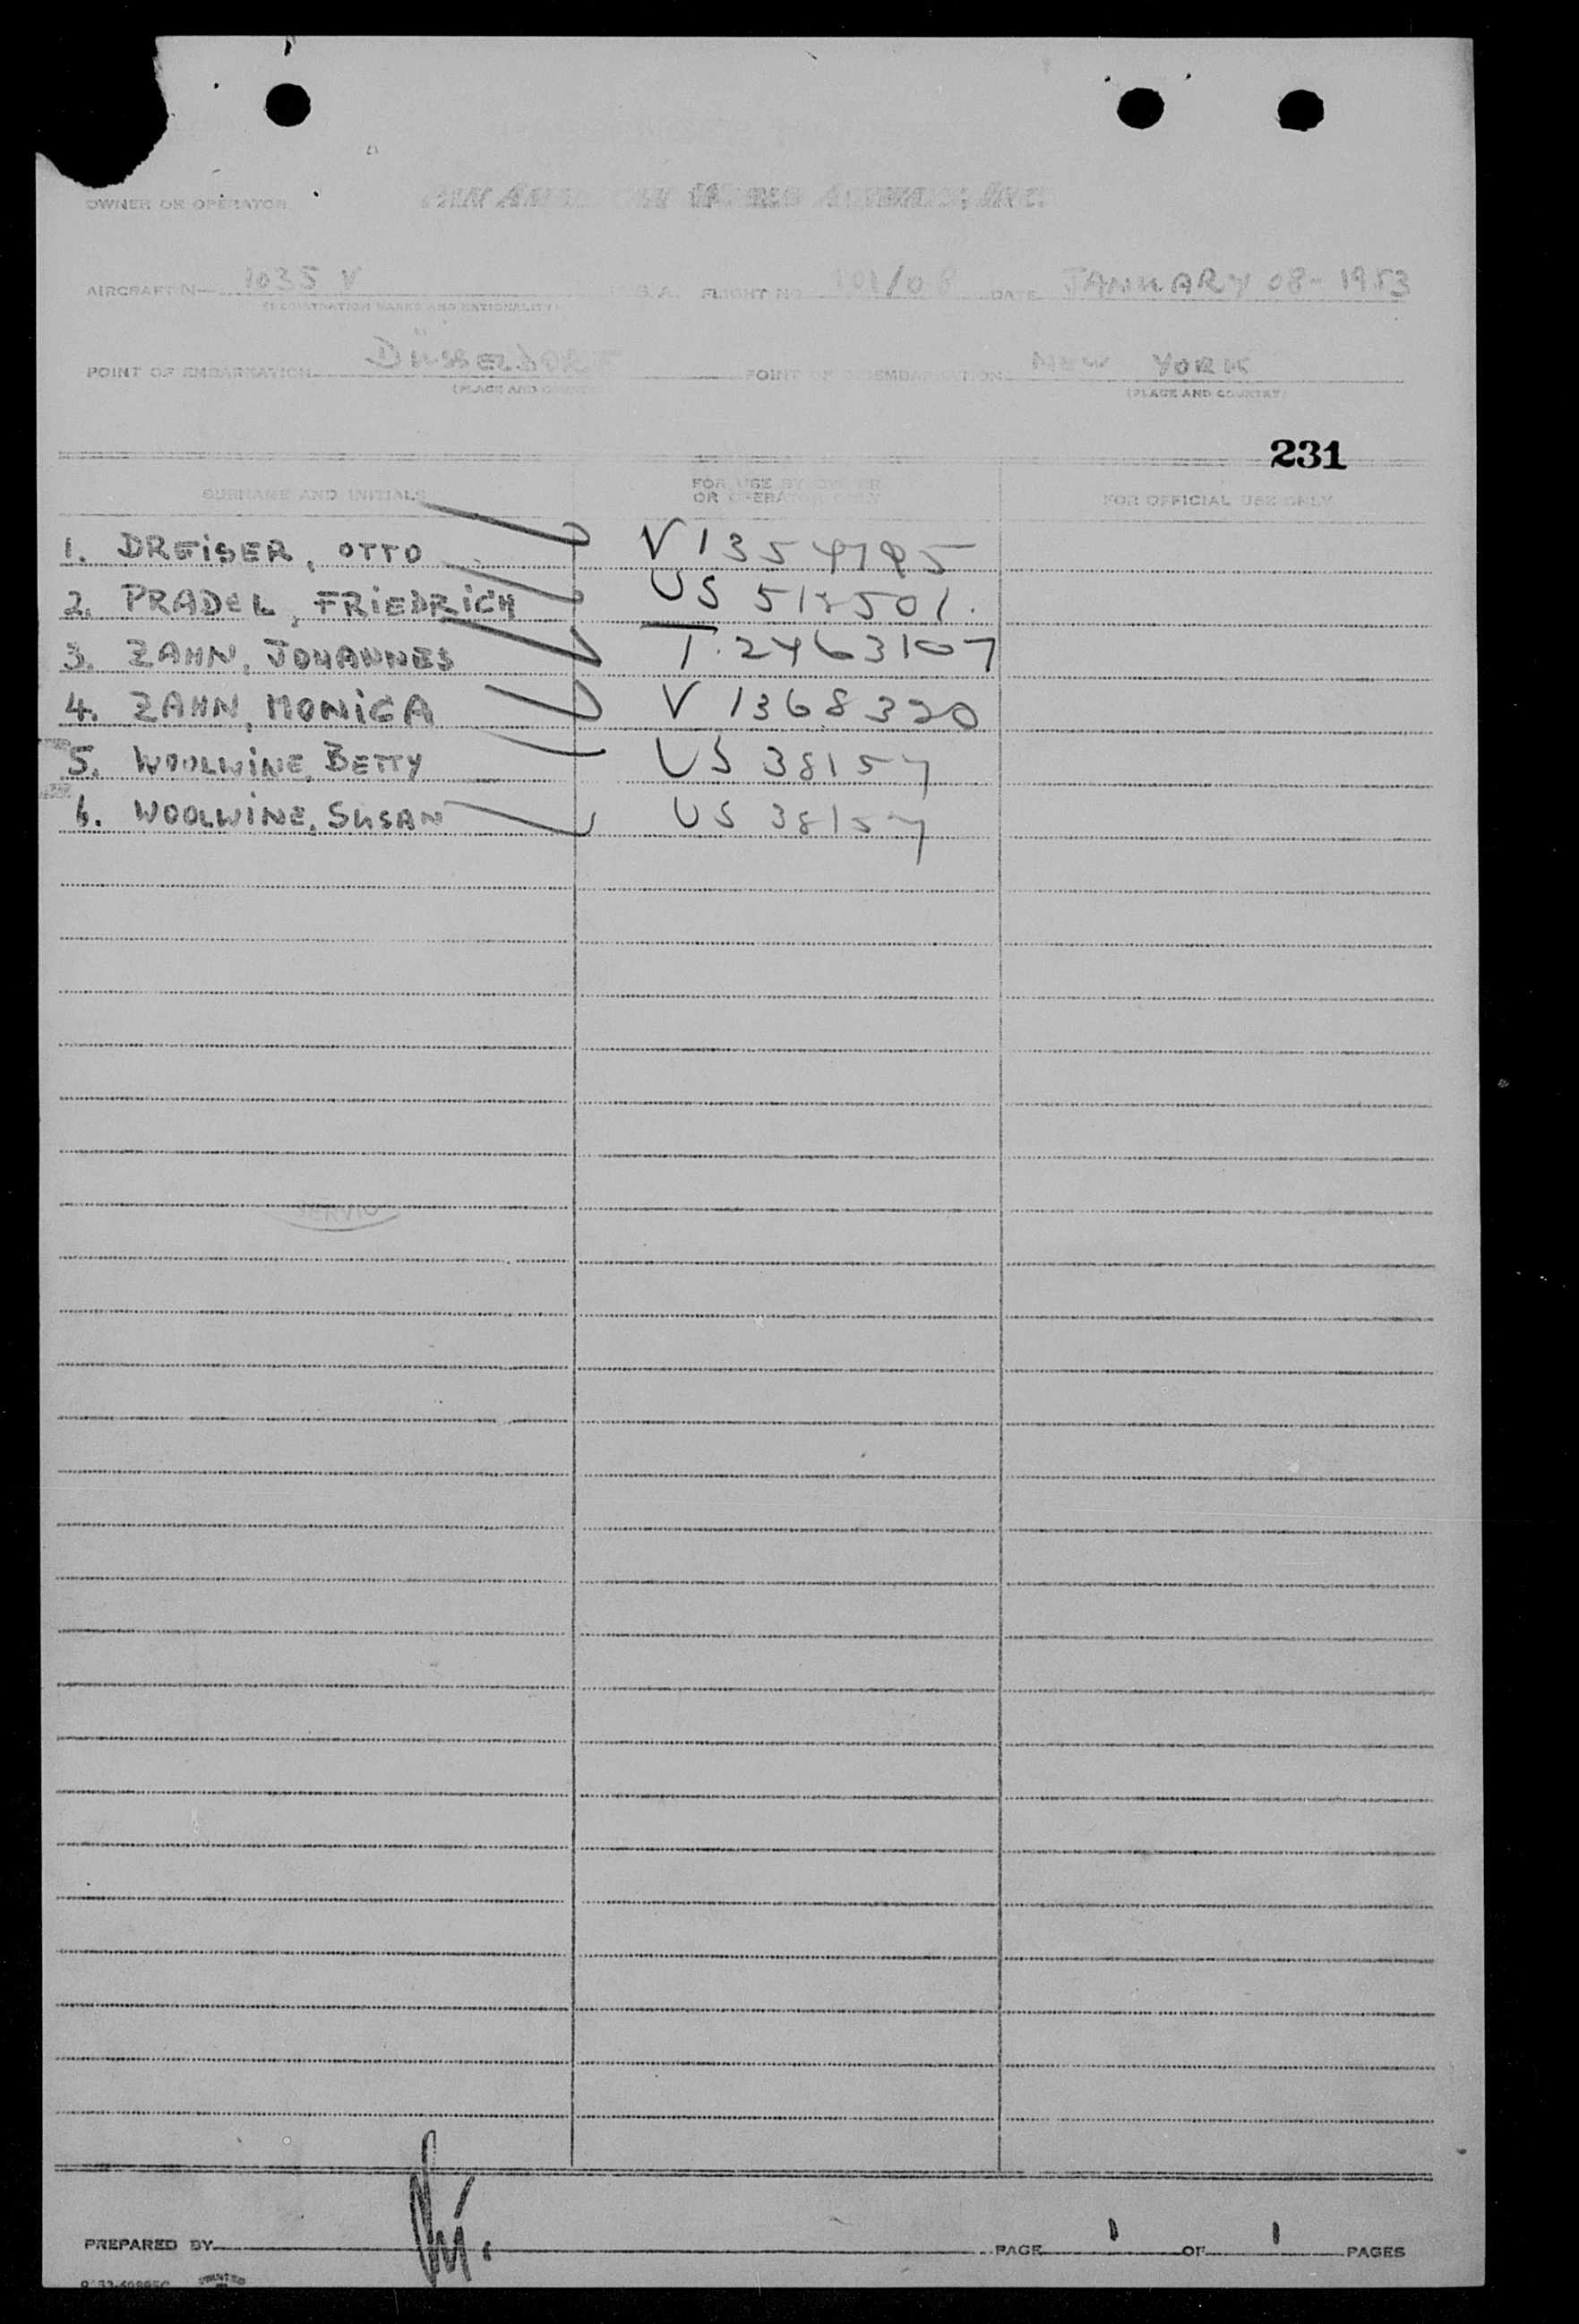 OWNER OR OPERATOR PAN AMERICAN WORLD AIRWAYS, INC.
AIRCRAFT N- 1035 V S.A. FLIGHT NO 101/08 DATE JANUARY 08-1953
(REGISTRATION MARKS AND NATIONALITY)
POINT OF EMBARKATION DÜSSELDORF POINT OF DISEMBARKATION NEW YORK
(PLACE AND COUNTRY) (PLACE AND COUNTRY)
231
SURNAME AND INITIALS FOR USE BY OWNER OR OPERATOR ONLY FOR OFFICIAL USE ONLY
1. DREISER, OTTO V 1354795
2. PRADEL, FRIEDRICH US 518501.
3. ZAHN, JOHANNES T. 2463107
4. ZAHN, MONICA V 1368320
5. WOOLWINE, BETTY US 38157
6. WOOLWINE, SUSAN US 38157
PREPARED BY PAGE 1 OF 1 PAGES